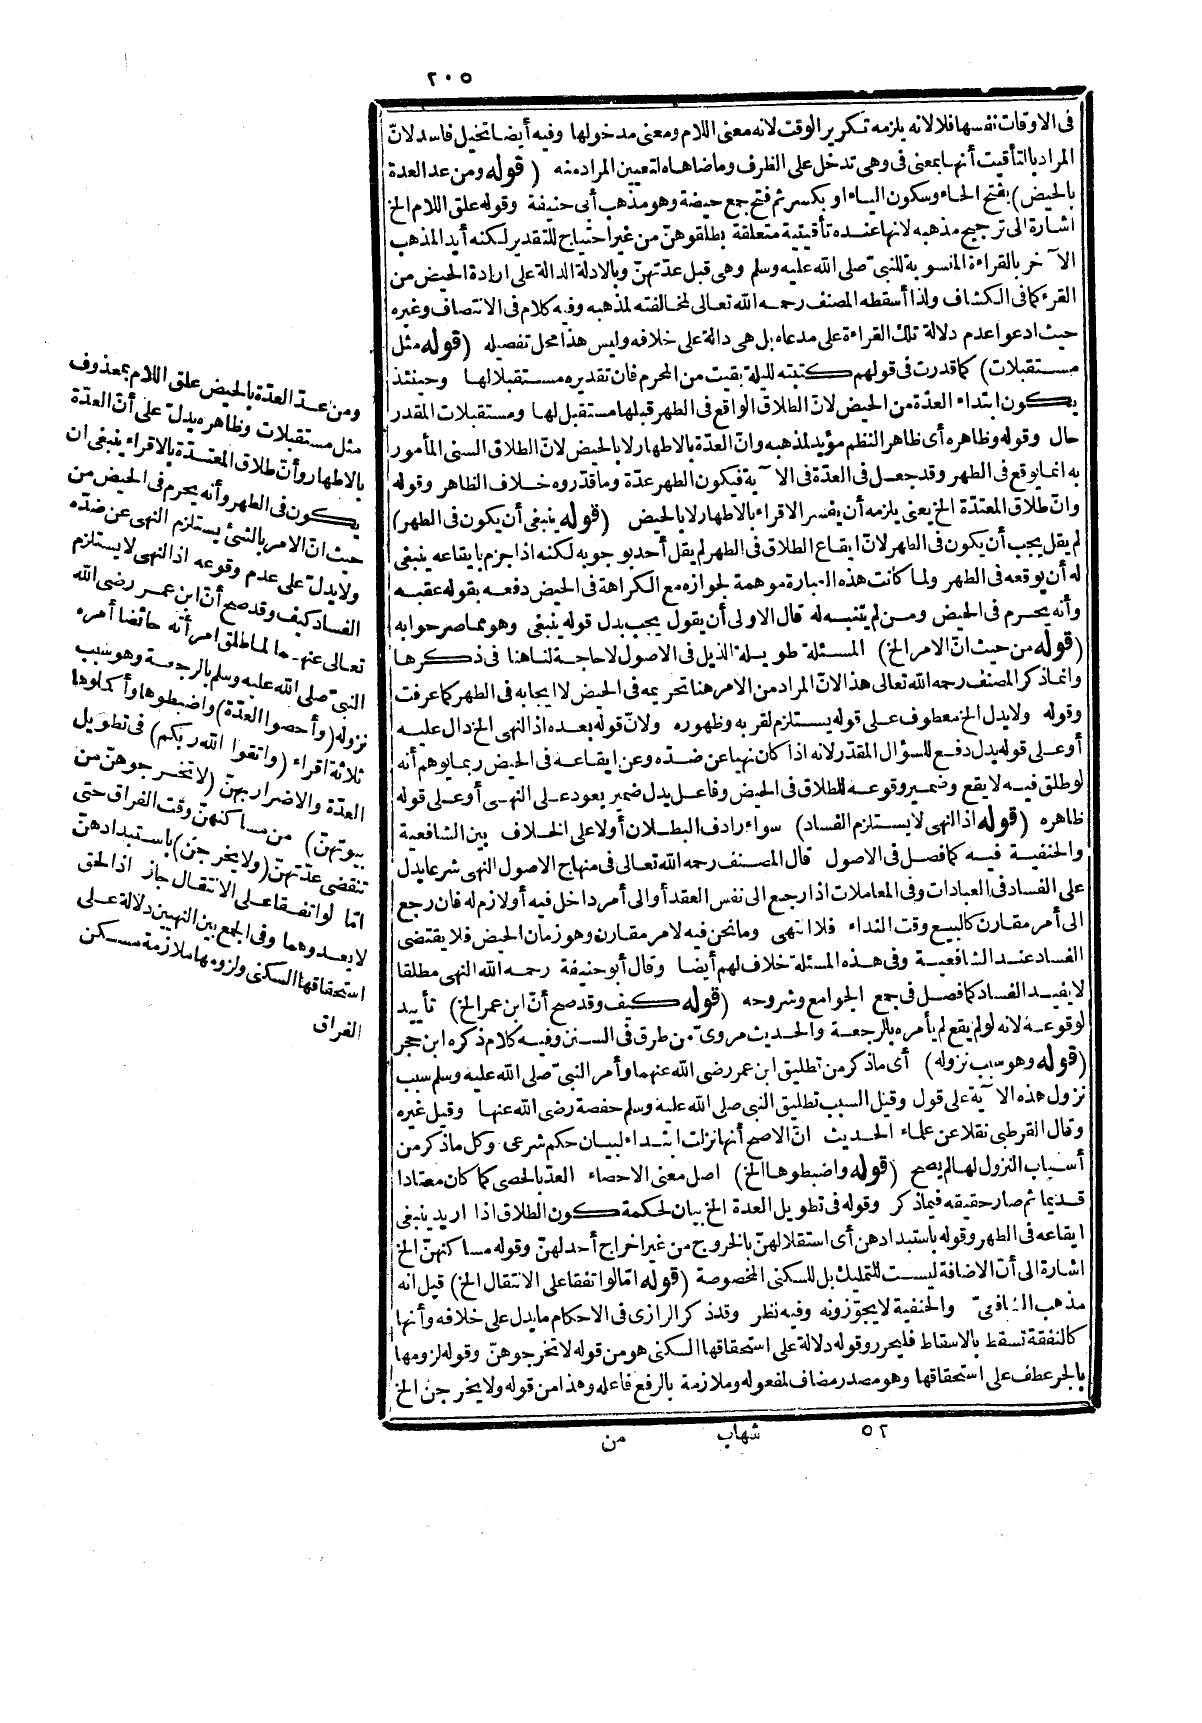 ٢٠٥
فى الاوقات نفسها فلا لانه يلزمه تكرير الوقت لانه معنى اللام ومعنى مدخولها وفيه أيضا تخيل فاسد لانّ
المراد بالتأقيت أنها بمعنى فى وهى تدخل على الظرف وما ضاهاه لتعيين المراد منه (قوله ومن عد العدة
بالحيض) بفتح الحاء وسكون الياء او بكسر ثم فتح جمع حيضة وهو مذهب أبى حنيفة وقوله علق اللام الخ
اشارة الى ترجيح مذهبه لانها عنده تأقيتية متعلقة بطلقوهنّ من غير احتياج للتقدير لكنه أيد المذهب
الآخر بالقراءة المنسوبة للنبىّ صلى الله عليه وسلم وهى قبل عدّتهنّ وبالادلة الدالة على ارادة الحيض من
القرء كما فى الكشاف ولذا أسقطه المصنف رحمه الله تعالى لمخالفته لمذهبه وفيه كلام فى الانتصاف وغيره
حيث ادعوا عدم دلالة تلك القراءة على مدعاه بل هى دالة على خلافه وليس هذا محل تفصيله (قوله مثل
مستقبلات) كما قدرت فى قولهم كتبته لليلة بقيت من المحرم فان تقديره مستقبلا لها وحينئذ
يكون ابتداء العدّة من الحيض لانّ الطلاق الواقع فى الطهر قبلها مستقبل لها ومستقبلات المقدر
حال وقوله وظاهره أى ظاهر النظم مؤيد لمذهبه وانّ العدّة بالاطهار لا بالحيض لانّ الطلاق السنى المأمور
به انما يوقع فى الطهر وقد جعل فى العدّة فى الآية فيكون الطهر عدّة وما قدّروه خلاف الظاهر وقوله
وانّ طلاق المعتدّة الخ يعنى يلزمه أن يفسر الاقراء بالاطهار لا بالحيض (قوله ينبغى أن يكون فى الطهر)
لم يقل يجب أن يكون فى الطهر لانّ ايقاع الطلاق فى الطهر لم يقل أحد بوجوبه لكنه اذا جزم بايقاعه ينبغى
له أن يوقعه فى الطهر ولما كانت هذه العبارة موهمة لجوازه مع الكراهة فى الحيض دفعه بقوله عقبه
وأنه يحرم فى الحيض ومن لم يتنبه له قال الاولى أن يقول يجب بدل قوله ينبغى وهو مما صر جوابه
(قوله من حيث انّ الامر الخ) المسئلة طويلة الذيل فى الاصول لا حاجة لنا هنا فى ذكرها
وانما ذكر المصنف رحمه الله تعالى هذا لانّ المراد من الامر هنا تحريمه فى الحيض لا ايجابه فى الطهر كما عرفت
وقوله ولا يدل الخ معطوف على قوله يستلزم لقربه وظهوره ولانّ قوله بعده اذ النهى الخ دال عليه
أو على قوله يدل دفع للسؤال المقدّر لانه اذا كان نهيا عن ضده وعن ايقاعه فى الحيض ربما يوهم أنه
لو طلق فيه لا يقع وضمير وقوعه للطلاق فى الحيض وفاعل يدل ضمير يعود على النهى أو على قوله
ظاهره (قوله اذ النهى لا يستلزم الفساد) سواء رادف البطلان أولا على الخلاف بين الشافعية
والحنفية فيه كما فصل فى الاصول قال المصنف رحمه الله تعالى فى منهاج الاصول النهى شرعا يدل
على الفساد فى العبادات وفى المعاملات اذا رجع الى نفس العقد أو الى أمر داخل فيه أو لازم له فان رجع
الى أمر مقارن كالبيع وقت النداء فلا انتهى وما نحن فيه لامر مقارن وهو زمان الحيض فلا يقتضى
الفساد عند الشافعية وفى هذه المسئلة خلاف لهم أيضا وقال أبو حنيفة رحمه الله النهى مطلقا
لا يفيد الفساد كما فصل فى جمع الجوامع وشروحه (قوله كيف وقد صح أنّ ابن عمر الخ) تأييد
لوقوعه لانه لو لم يقع لم يأمره بالرجعة والحديث مروىّ من طرق فى السنن وفيه كلام ذكره ابن حجر
(قوله وهو سبب نزوله) أى ما ذكر من تطليق ابن عمر رضى الله عنهما وأمر النبىّ صلى الله عليه وسلم سبب
نزول هذه الآية على قول وقيل السبب تطليق النبى صلى الله عليه وسلم حفصة رضى الله عنها وقيل غيره
وقال القرطبى نقلا عن علماء الحديث انّ الاصح أنها نزلت ابتداء لبيان حكم شرعى وكل ما ذكر من
أسباب النزول لها لم يصح (قوله واضبطوها الخ) اصل معنى الاحصاء العد بالحصى كما كان معتادا
قديما ثم صار حقيقه فيما ذكر وقوله فى تطويل العدة الخ بيان لحكمة كون الطلاق اذا اريد ينبغى
ايقاعه فى الطهر وقوله باستبدادهن أى استقلالهنّ بالخروج من غير اخراج أحد لهنّ وقوله مساكنهنّ الخ
اشارة الى أنّ الاضافة ليست للتمليك بل للسكنى المخصوصة (قوله امّا لو اتفقا على الانتقال الخ) قيل انه
مذهب الشافعىّ والحنفية لا يجوّزونه وفيه نظر وقد ذكر الرازى فى الاحكام ما يدل على خلافه وأنها
كالنفقة تسقط بالاسقاط فليحرر وقوله دلالة على استحقاقها السكنى هو من قوله لا تخرجوهنّ وقوله لزومها
بالجر عطف على استحقاقها وهو مصدر مضاف لمفعوله وملازمة بالرفع فاعله وهذا من قوله ولا يخرجن الخ
ومن عدّ العدّة بالحيض علق اللام بمحذوف
مثل مستقبلات وظاهره يدلّ على أنّ العدّة
بالاطهار وأنّ طلاق المعتدّة بالاقراء ينبغى ان
يكون فى الطهر وأنه يحرم فى الحيض من
حيث انّ الامر بالشئ يستلزم النهى عن ضدّه
ولا يدلّ على عدم وقوعه اذ النهى لا يستلزم
الفساد كيف وقد صح أنّ ابن عمر رضى الله
تعالى عنهما لما طلق امرأته حائضا أمره
النبىّ صلى الله عليه وسلم بالرجعة وهو سبب
نزوله (وأحصوا العدّة) واضبطوها وأكملوها
ثلاثة اقراء (واتقوا الله ربكم) فى تطويل
العدّة والاضرار بهنّ (لا تخرجوهنّ من
بيوتهنّ) من مساكنهنّ وقت الفراق حتى
تنقضى عدّتهنّ (ولا يخرجن) باستبدادهنّ
امّا لو اتفقا على الانتقال جاز اذ الحق
لا يعدوهما وفى الجمع بين النهيين دلالة على
استحقاقها السكنى ولزومها ملازمة مسكن
الفراق
٥٢ شهاب من